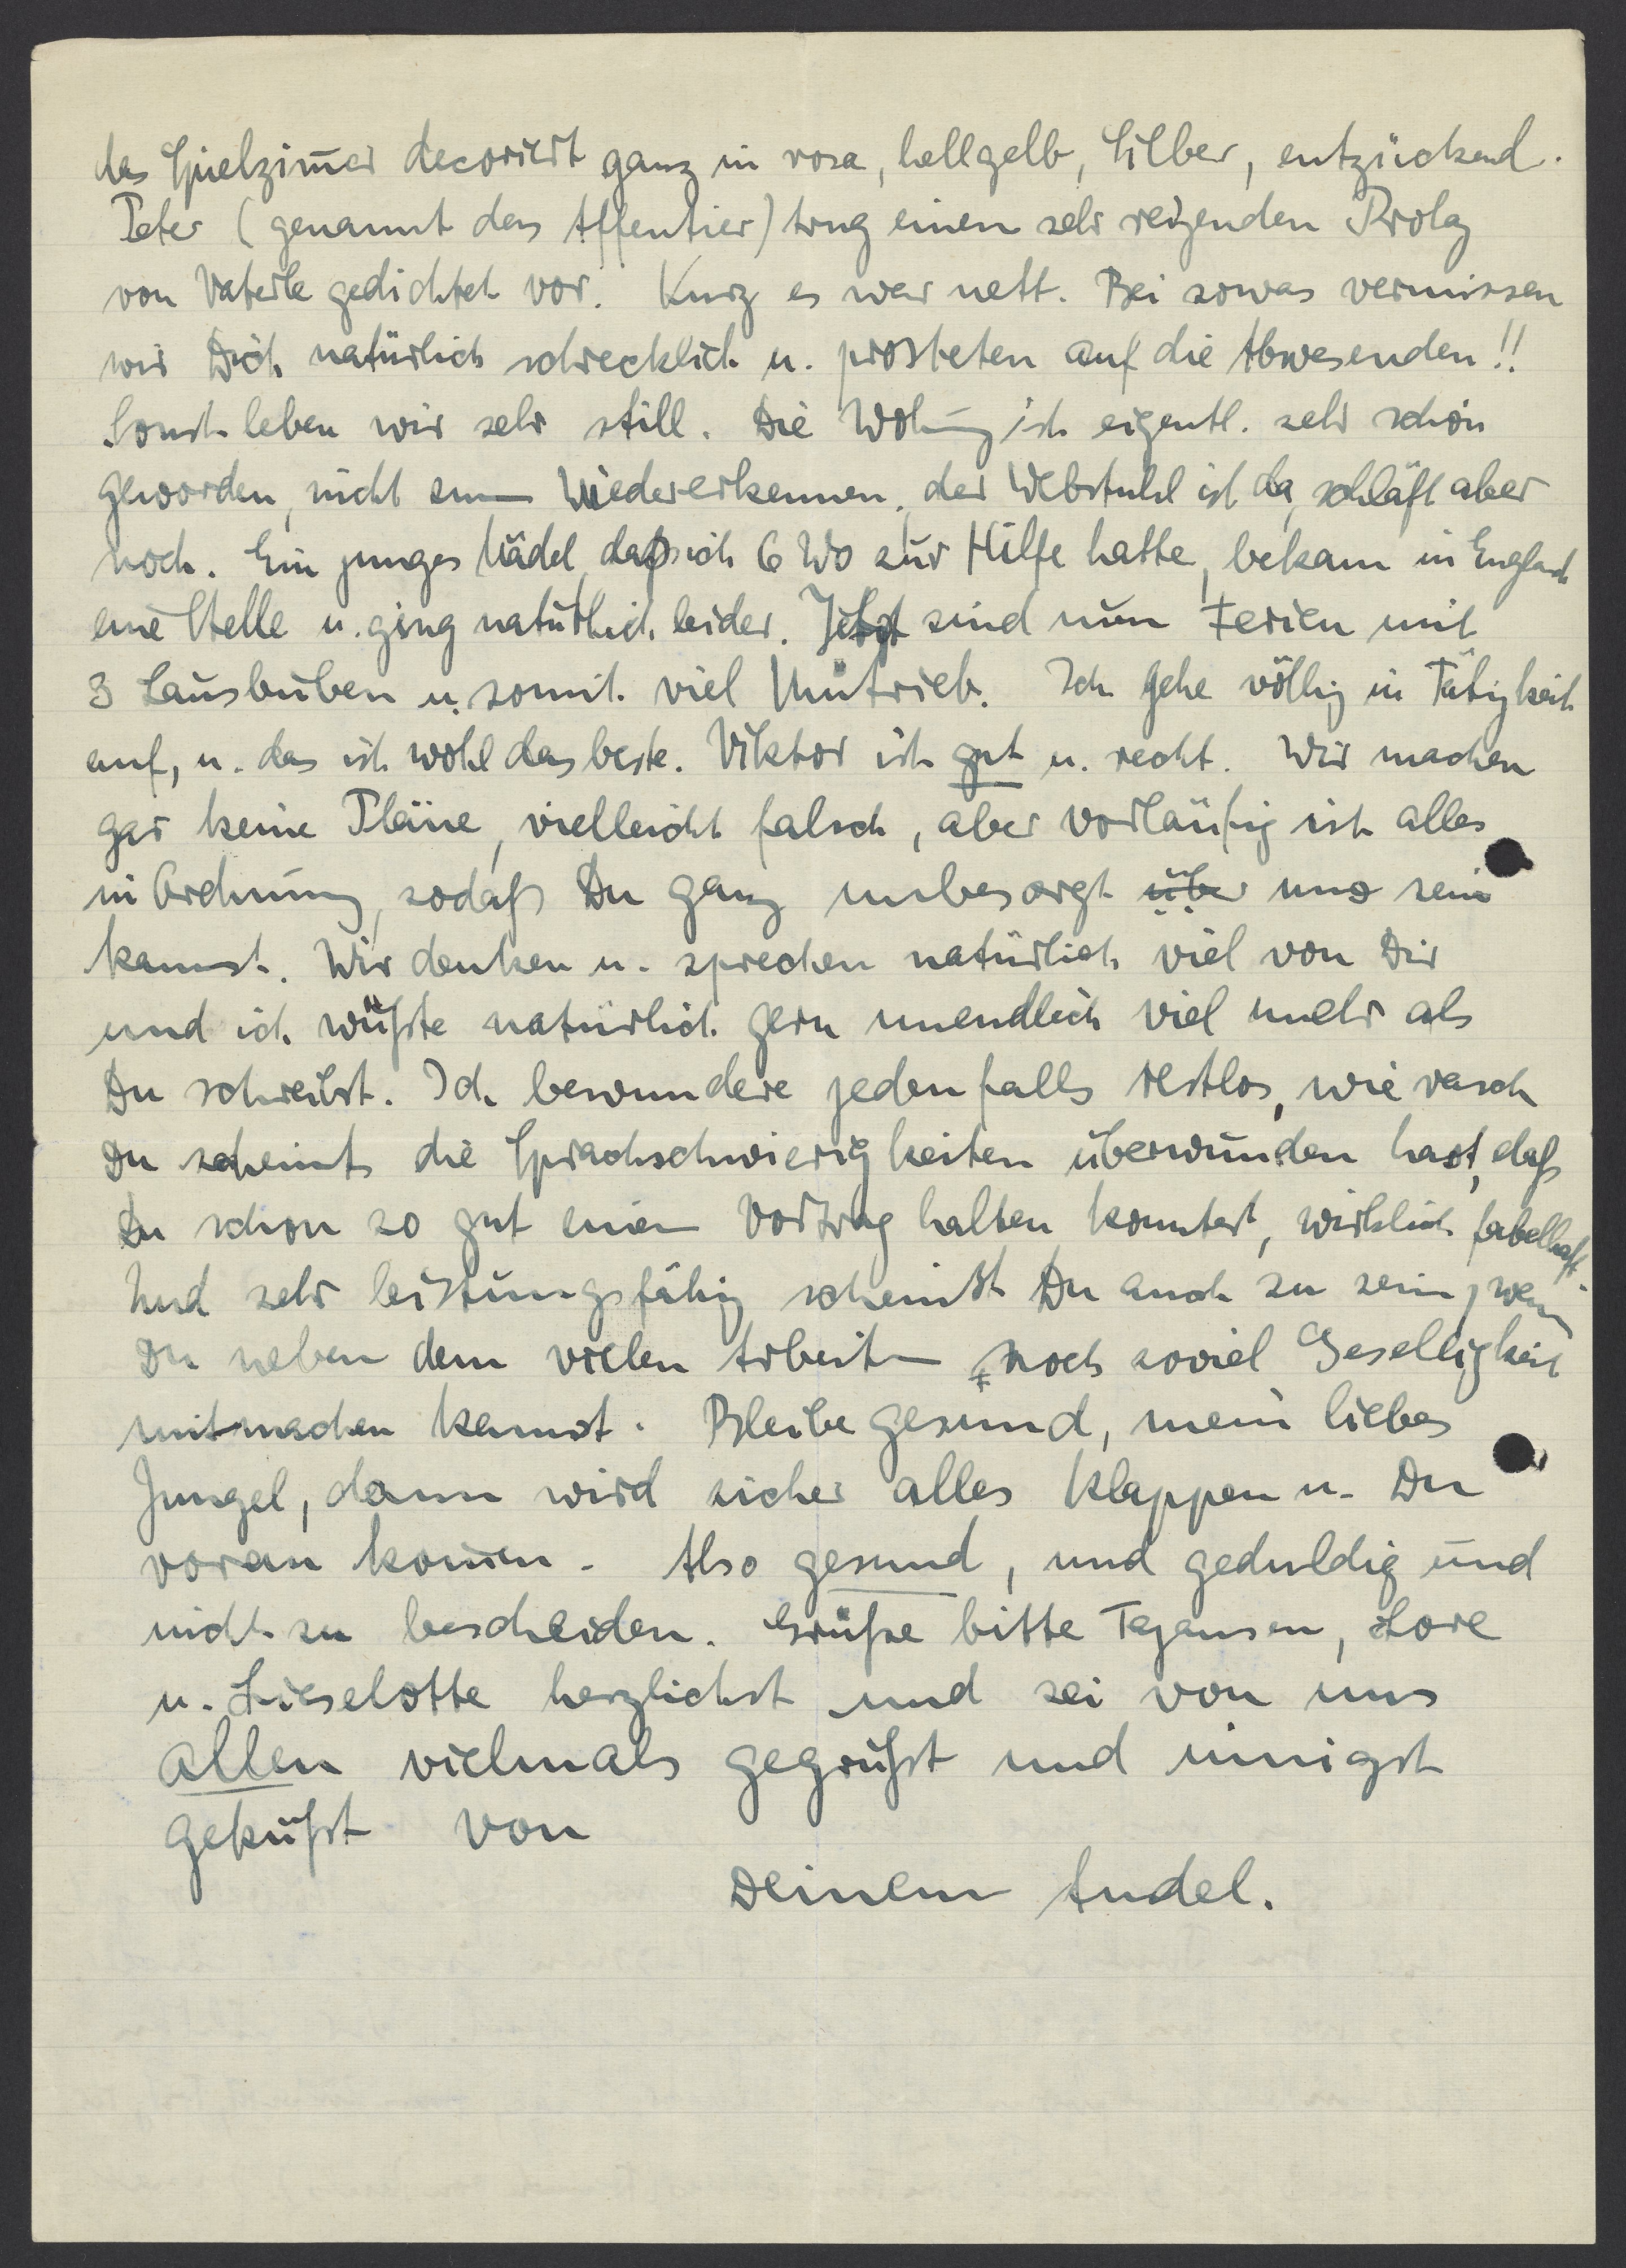 das Spielzim̅er decoriert ganz in rosa, hellgelb, Silber, entzückend.
Peter (genannt das Affentier) trug einen sehr reizenden Prolog
von Vaterle gedichtet vor. Kurz es war nett. Bei sowas vermissen
wir Dich natürlich schrecklich u. prosteten auf die Abwesenden!!
Sonst leben wir sehr still. Die Wohnung ist eigentl. sehr schön
geworden, nicht zum Wiedererkennen, der Webstuhl ist da, schläft aber
noch. Ein junges Mädel, daß ich 6 Wo zur Hilfe hatte, bekam in England
eine Stelle u. ging natürlich leider. Jetzt sind nun Ferien mit
3 Lausbuben u. somit viel Umtrieb. Ich gehe völlig in Tätigkeit
auf, u. das ist wohl das beste. Viktor ist gut u. recht. Wir machen
gar keine Pläne, vielleicht falsch, aber vorläufig ist alles
in Ordnung, sodaß Du ganz unbesorgt über uns sein
kannst. Wir denken u. sprechen natürlich viel von Dir
und ich wüßte natürlich gern unendlich viel mehr als
Du schreibst. Ich bewundere jedenfalls restlos, wie rasch
Du scheints die Sprachschwierigkeiten überwunden hast, daß
Du schon so gut einen Vortrag halten konntest, wirklich fabelhaft.
Und sehr leistungsfähig scheinst Du auch zu sein, wenn
Du neben dem vielen Arbeiten noch soviel Geselligkeit
mitmachen kannst. Bleibe gesund, mein liebes
Jungel, dann wird sicher alles klappen u. Du
voran kom̅en. Also gesund, und geduldig und
nicht zu bescheiden. Grüße bitte, Lore
u. Lieselotte herzlichst und sei von uns
allen vielmals gegrüßt und innigst
geküßt von
Deinem Audel.